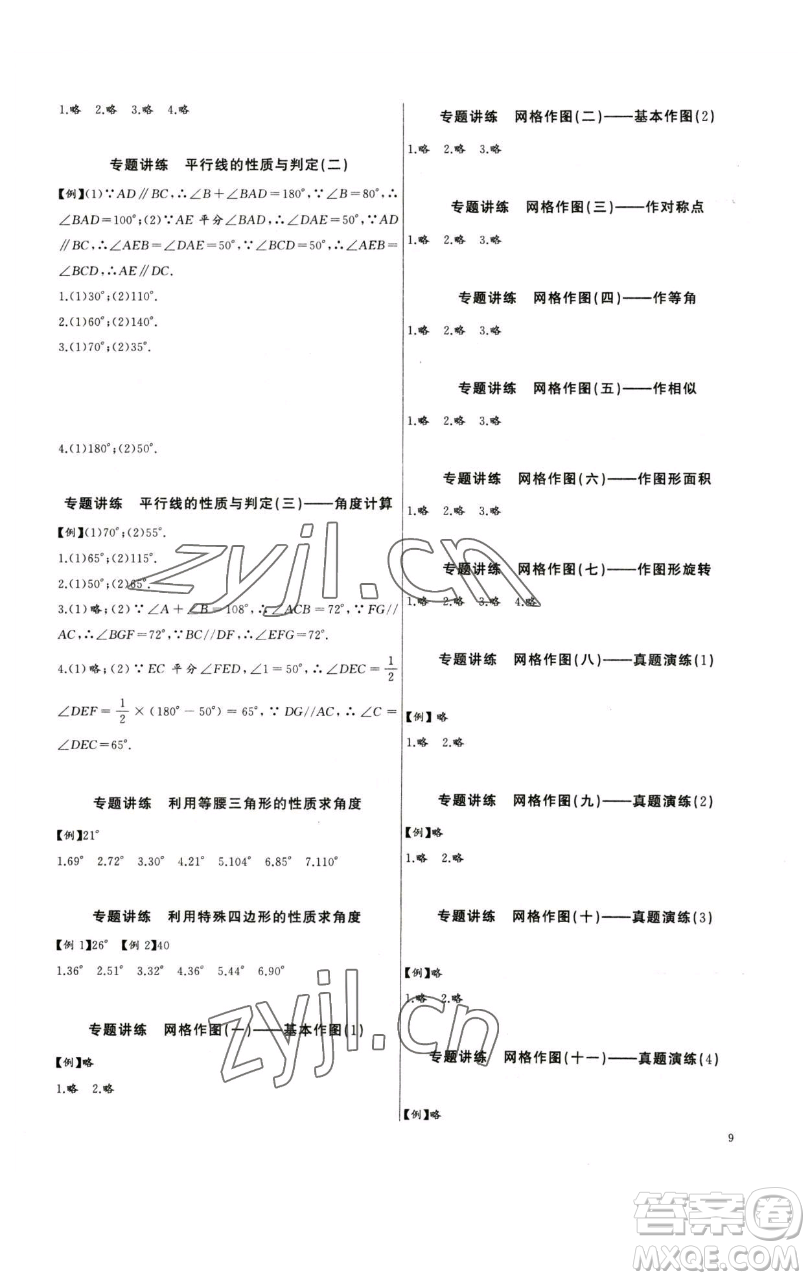 1.略 2.略 3.略 4.略
专题讲练 平行线的性质与判定(二)
【例】(1)∵AD∥BC,∴∠B+∠BAD=180°,∵∠B=80°,∴
∠BAD=100°;(2)∵AE 平分∠BAD,∴∠DAE=50°,∵AD
∥BC,∴∠AEB=∠DAE=50°,∵∠BCD=50°,∴∠AEB=
∠BCD,∴AE∥DC.
1.(1)30°;(2)110°.
2.(1)60°;(2)140°.
3.(1)70°;(2)35°.
4.(1)180°;(2)50°.
专题讲练 平行线的性质与判定(三)——角度计算
【例】(1)70°;(2)55°.
1.(1)65°;(2)115°.
2.(1)50°;(2)65°.
3.(1)略;(2)∵∠A+∠B=108°,∴∠ACB=72°,∵FG//
AC,∴∠BGF=72°,∵BC//DF,∴∠EFG=72°.
4.(1)略;(2)∵EC 平分∠FED,∠1=50°,∴∠DEC=1/2
∠DEF=1/2×(180°-50°)=65°,∵DG//AC,∴∠C=
∠DEC=65°.
专题讲练 利用等腰三角形的性质求角度
【例】21°
1.69° 2.72° 3.30° 4.21° 5.104° 6.85° 7.110°
专题讲练 利用特殊四边形的性质求角度
【例 1】26° 【例 2】40
1.36° 2.51° 3.32° 4.36° 5.44° 6.90°
专题讲练 网格作图(一)——基本作图(1)
【例】略
1.略 2.略
专题讲练 网格作图(二)——基本作图(2)
1.略 2.略 3.略
专题讲练 网格作图(三)——作对称点
1.略 2.略 3.略
专题讲练 网格作图(四)——作等角
1.略 2.略 3.略
专题讲练 网格作图(五)——作相似
1.略 2.略 3.略
专题讲练 网格作图(六)——作图形面积
1.略 2.略 3.略
专题讲练 网格作图(七)——作图形旋转
1.略 2.略 3.略 4.略
专题讲练 网格作图(八)——真题演练(1)
【例】略
1.略 2.略
专题讲练 网格作图(九)——真题演练(2)
【例】略
1.略 2.略
专题讲练 网格作图(十)——真题演练(3)
【例】略
1.略 2.略
专题讲练 网格作图(十一)——真题演练(4)
【例】略
9
zyjl.cn
zyjl.cn
答案圈
MXQE.COM